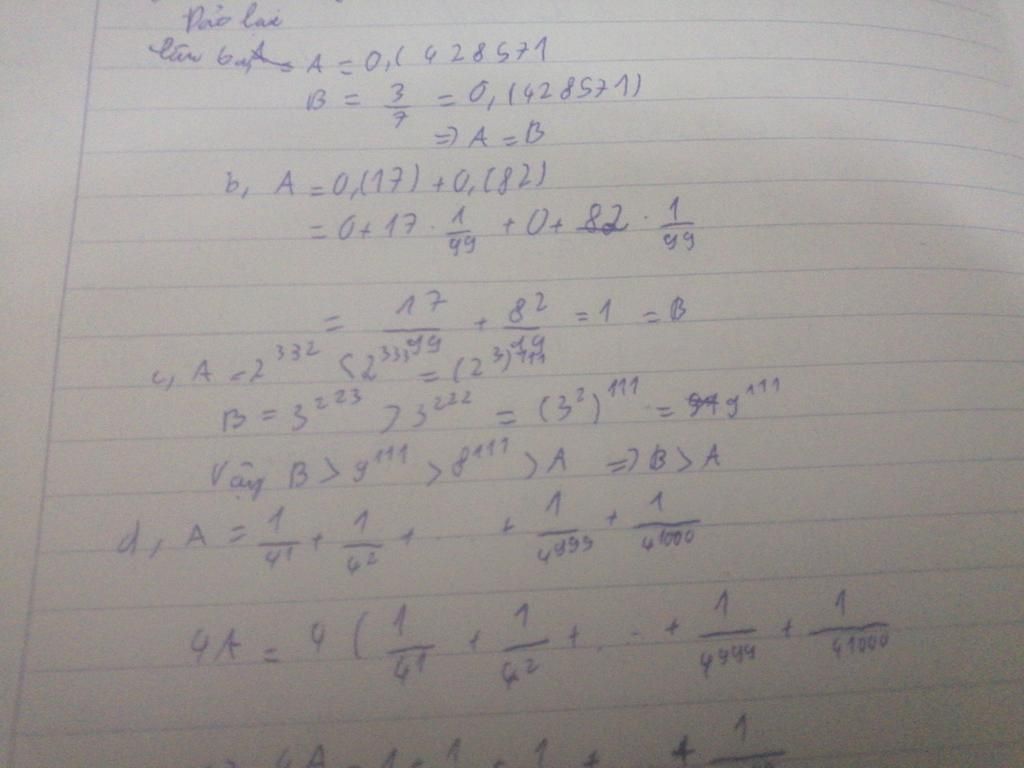 Đảo lại
A = 0,(428571
B = 3/7 = 0,(428571)
=> A = B
b, A = 0,(17) + 0,(82)
= 0 + 17 . 1/99 + 0 + 82 . 1/99
= 17/99 + 82/99 = 1 = B
c, A = 2^332 < 2^333 = (2^3)^111
B = 3^223 > 3^222 = (3^2)^111 = 9^111
Vậy B > 9^111 > 8^111 > A => B > A
d, A = 1/4^1 + 1/4^2 + .... + 1/4^999 + 1/4^1000
4A = 4 ( 1/4^1 + 1/4^2 + ... + 1/4^999 + 1/4^1000